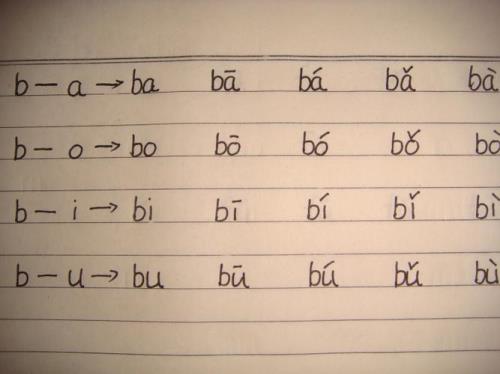 b — a → ba bā bá bǎ bà
b — o → bo bō bó bǒ bò
b — i → bi bī bí bǐ bì
b — u → bu bū bú bǔ bù